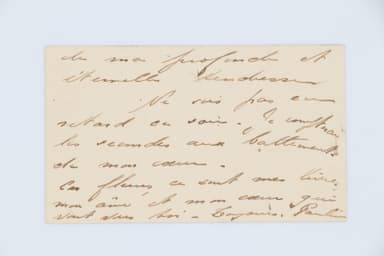 de ma profonde et
éternelle tendresse
Ne sois pas en
retard ce soir. Je compterai
les secondes aux battements
de mon cœur.
Ces fleurs ce sont mes lèvres,
mon âme et mon cœur qui
vont vers toi. Toujours.